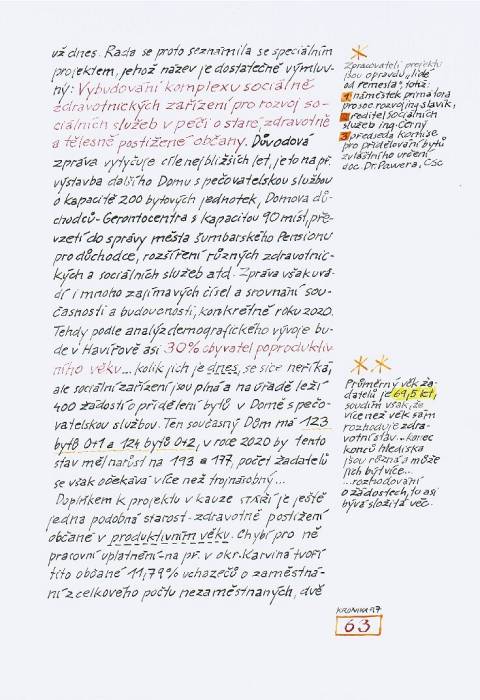 už dnes. Rada se proto seznámila se speciálním
projektem, jehož název je dostatečně výmluv-
ný: Vybudování komplexu sociálně
zdravotnických zařízení pro rozvoj so-
ciálních služeb v péči o staré, zdravotně
a tělesně postižené občany. Důvodová
zpráva vytyčuje cíle nejbližších let, je to na př.
výstavba dalšího Domu s pečovatelskou službou
o kapacitě 200 bytových jednotek, Domova dů-
chodců-Gerontocentra s kapacitou 90 míst, pře-
vzetí do správy města šumbarského Pensionu
pro důchodce, rozšíření různých zdravotnic-
kých a sociálních služeb atd. Zpráva však uvá-
dí i mnoho zajímavých čísel a srovnání sou-
časnosti a budoucnosti, konkrétně roku 2020.
Tehdy podle analýz demografického vývoje bu-
de v Havířově asi 30% obyvatel poproduktiv-
ního věku... kolik jich je dnes, se sice neříká,
ale sociální zařízení jsou plná a na úřadě leží
400 žádostí o přidělení bytů v Domě s pečo-
vatelskou službou. Ten současný Dům má 123
bytů 0+1 a 124 bytů 0+2, v roce 2020 by tento
stav měl narůst na 193 a 177, počet žadatelů
se však očekává více než trojnásobný...
Doplňkem k projektu v kauze STÁŘÍ je ještě
jedna podobná starost - zdravotně postižení
občané v produktivním věku. Chybí pro ně
pracovní uplatnění - na př. v okr. Karviná tvoří
tito občané 11,79% uchazečů o zaměstná-
ní z celkového počtu nezaměstnaných, dvě
Zpracovateli projektu
jsou opravdu „lidé
od řemesla", totiž:
1 náměstek primátora
pro soc. rozvoj ing. Slavík,
2 ředitel sociálních
služeb ing. Černý
3 předseda komise
pro přidělování bytů
zvláštního určení
doc. Dr. Pawera, CSc
Průměrný věk ža-
datelů je 69,5 let,
soudím však, že
více než věk sám
rozhoduje zdra-
votní stav... konec
konců hlediska
jsou různá a může
jich být více...
...rozhodování
o žádostech, to asi
bývá složitá věc.
KRONIKA 97
63